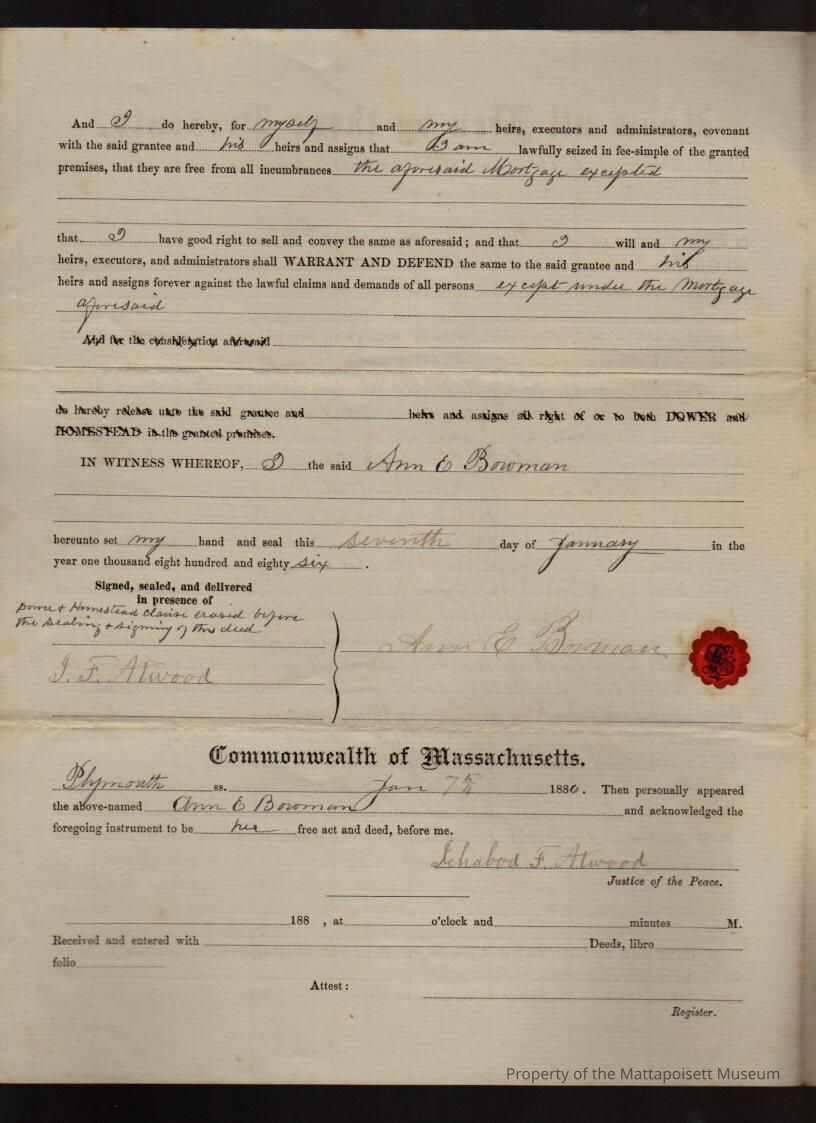 And I do hereby, for myself and my heirs, executors and administrators, covenant
with the said grantee and his heirs and assigns that I am lawfully seized in fee-simple of the granted
premises, that they are free from all incumbrances the aforesaid Mortgage excepted
that I have good right to sell and convey the same as aforesaid; and that I will and my
heirs, executors, and administrators shall WARRANT AND DEFEND the same to the said grantee and his
heirs and assigns forever against the lawful claims and demands of all persons except under the Mortgage
aforesaid
And for the consideration aforesaid
do hereby release unto the said grantee and heirs and assigns all right of or to both DOWER and
HOMESTEAD in the granted premises.
IN WITNESS WHEREOF, I the said Ann E Bowman
hereunto set my hand and seal this seventh day of January in the
year one thousand eight hundred and eighty six.
Signed, sealed, and delivered
in presence of
Dower & Homestead clause erased before
the sealing & signing of this deed
Ann E Bowman.
I. F. Atwood
Commonwealth of Massachusetts.
Plymouth ss. Jan 7th 1886. Then personally appeared
the above-named Ann E Bowman and acknowledged the
foregoing instrument to be her free act and deed, before me.
Ichabod F. Atwood
Justice of the Peace.
188 , at o'clock and minutes M.
Received and entered with Deeds, libro
folio
Attest:
Register.
Property of the Mattapoisett Museum